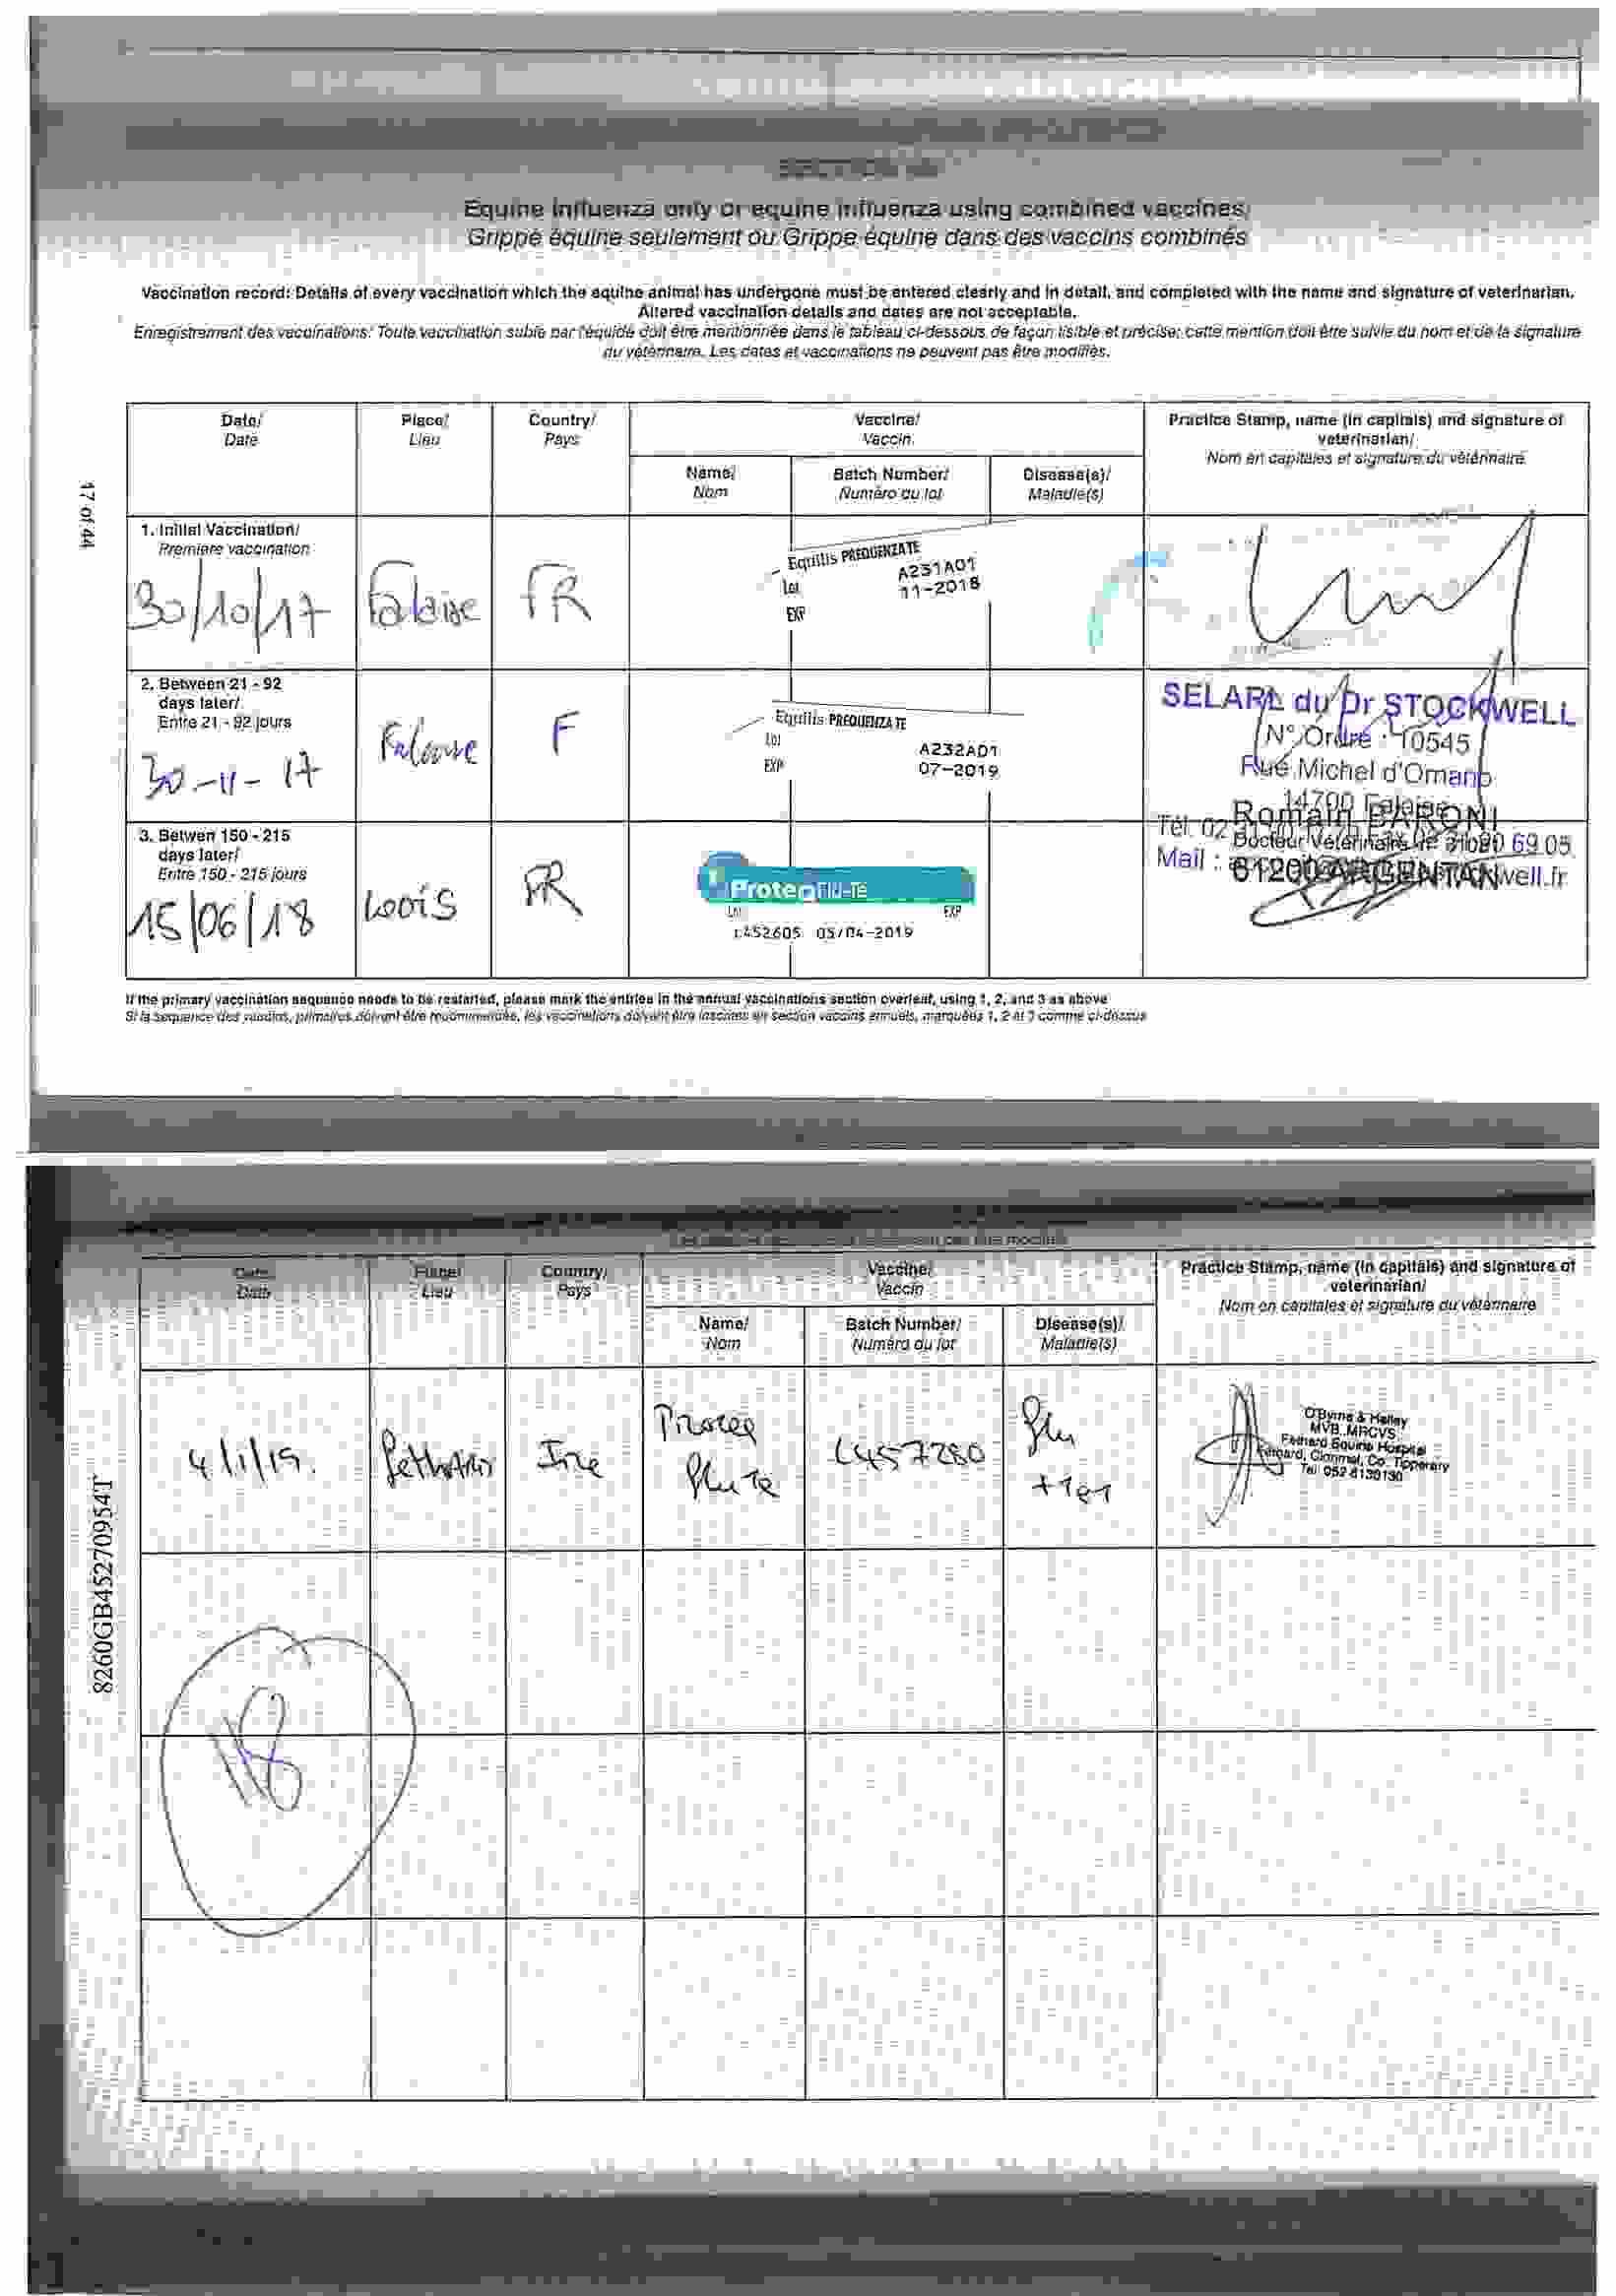 Equine influenza only or equine influenza using combined vaccines/
Grippe équine seulement ou Grippe équine dans des vaccins combinés
Vaccination record: Details of every vaccination which the equine animal has undergone must be entered clearly and in detail, and completed with the name and signature of veterinarian.
Altered vaccination details and dates are not acceptable.
Enregistrement des vaccinations: Toute vaccination subie par l'équidé doit être mentionnée dans le tableau ci-dessous de façon lisible et précise; cette mention doit être suivie du nom et de la signature
du vétérinaire. Les dates et vaccinations ne peuvent pas être modifiés.
Date/ Place/ Country/ Vaccine/ Practice Stamp, name (in capitals) and signature of
Date Lieu Pays Vaccin veterinarian/
Nom en capitales et signature du vétérinaire
Name/ Batch Number/ Disease(s)/
Nom Numéro du lot Maladie(s)
17 of 44
1. Initial Vaccination/
Premiere vaccination
30/10/17 Falaise FR
Equilis PREQUENZA TE
Lot A231A01
EXP 11-2018
2. Between 21 - 92
days later/
Entre 21 - 92 jours
30-11-17 Falaise F
Equilis PREQUENZA TE
Lot A232A01
EXP 07-2019
SELARL du Dr STOCKWELL
N° Ordre : 10545
Rue Michel d'Ornano
14700 Falaise
3. Betwen 150 - 215
days later/
Entre 150 - 215 jours
15/06/18 LOOIS FR
ProteqFlu-Te
Lot EXP
L452605 05/04-2019
Tél. 02 69 05
Mail :
Romain BARONI
Docteur Vétérinaire
61200 ARGENTAN
If the primary vaccination sequence needs to be restarted, please mark the entries in the annual vaccinations section overleaf, using 1, 2, and 3 as above
Date/ Place/ Country/ Vaccine/ Practice Stamp, name (in capitals) and signature of
Date Lieu Pays Vaccin veterinarian/
Nom en capitales et signature du vétérinaire
Name/ Batch Number/ Disease(s)/
Nom Numéro du lot Maladie(s)
4/1/19. Fethard Ire Proteq L457280 Flu
Flu Te + Tet
O'Byrne & Halley
MVB MRCVS
Fethard Equine Hospital
Fethard, Clonmel, Co. Tipperary
Tel 052 6130130
8260GB45270954T